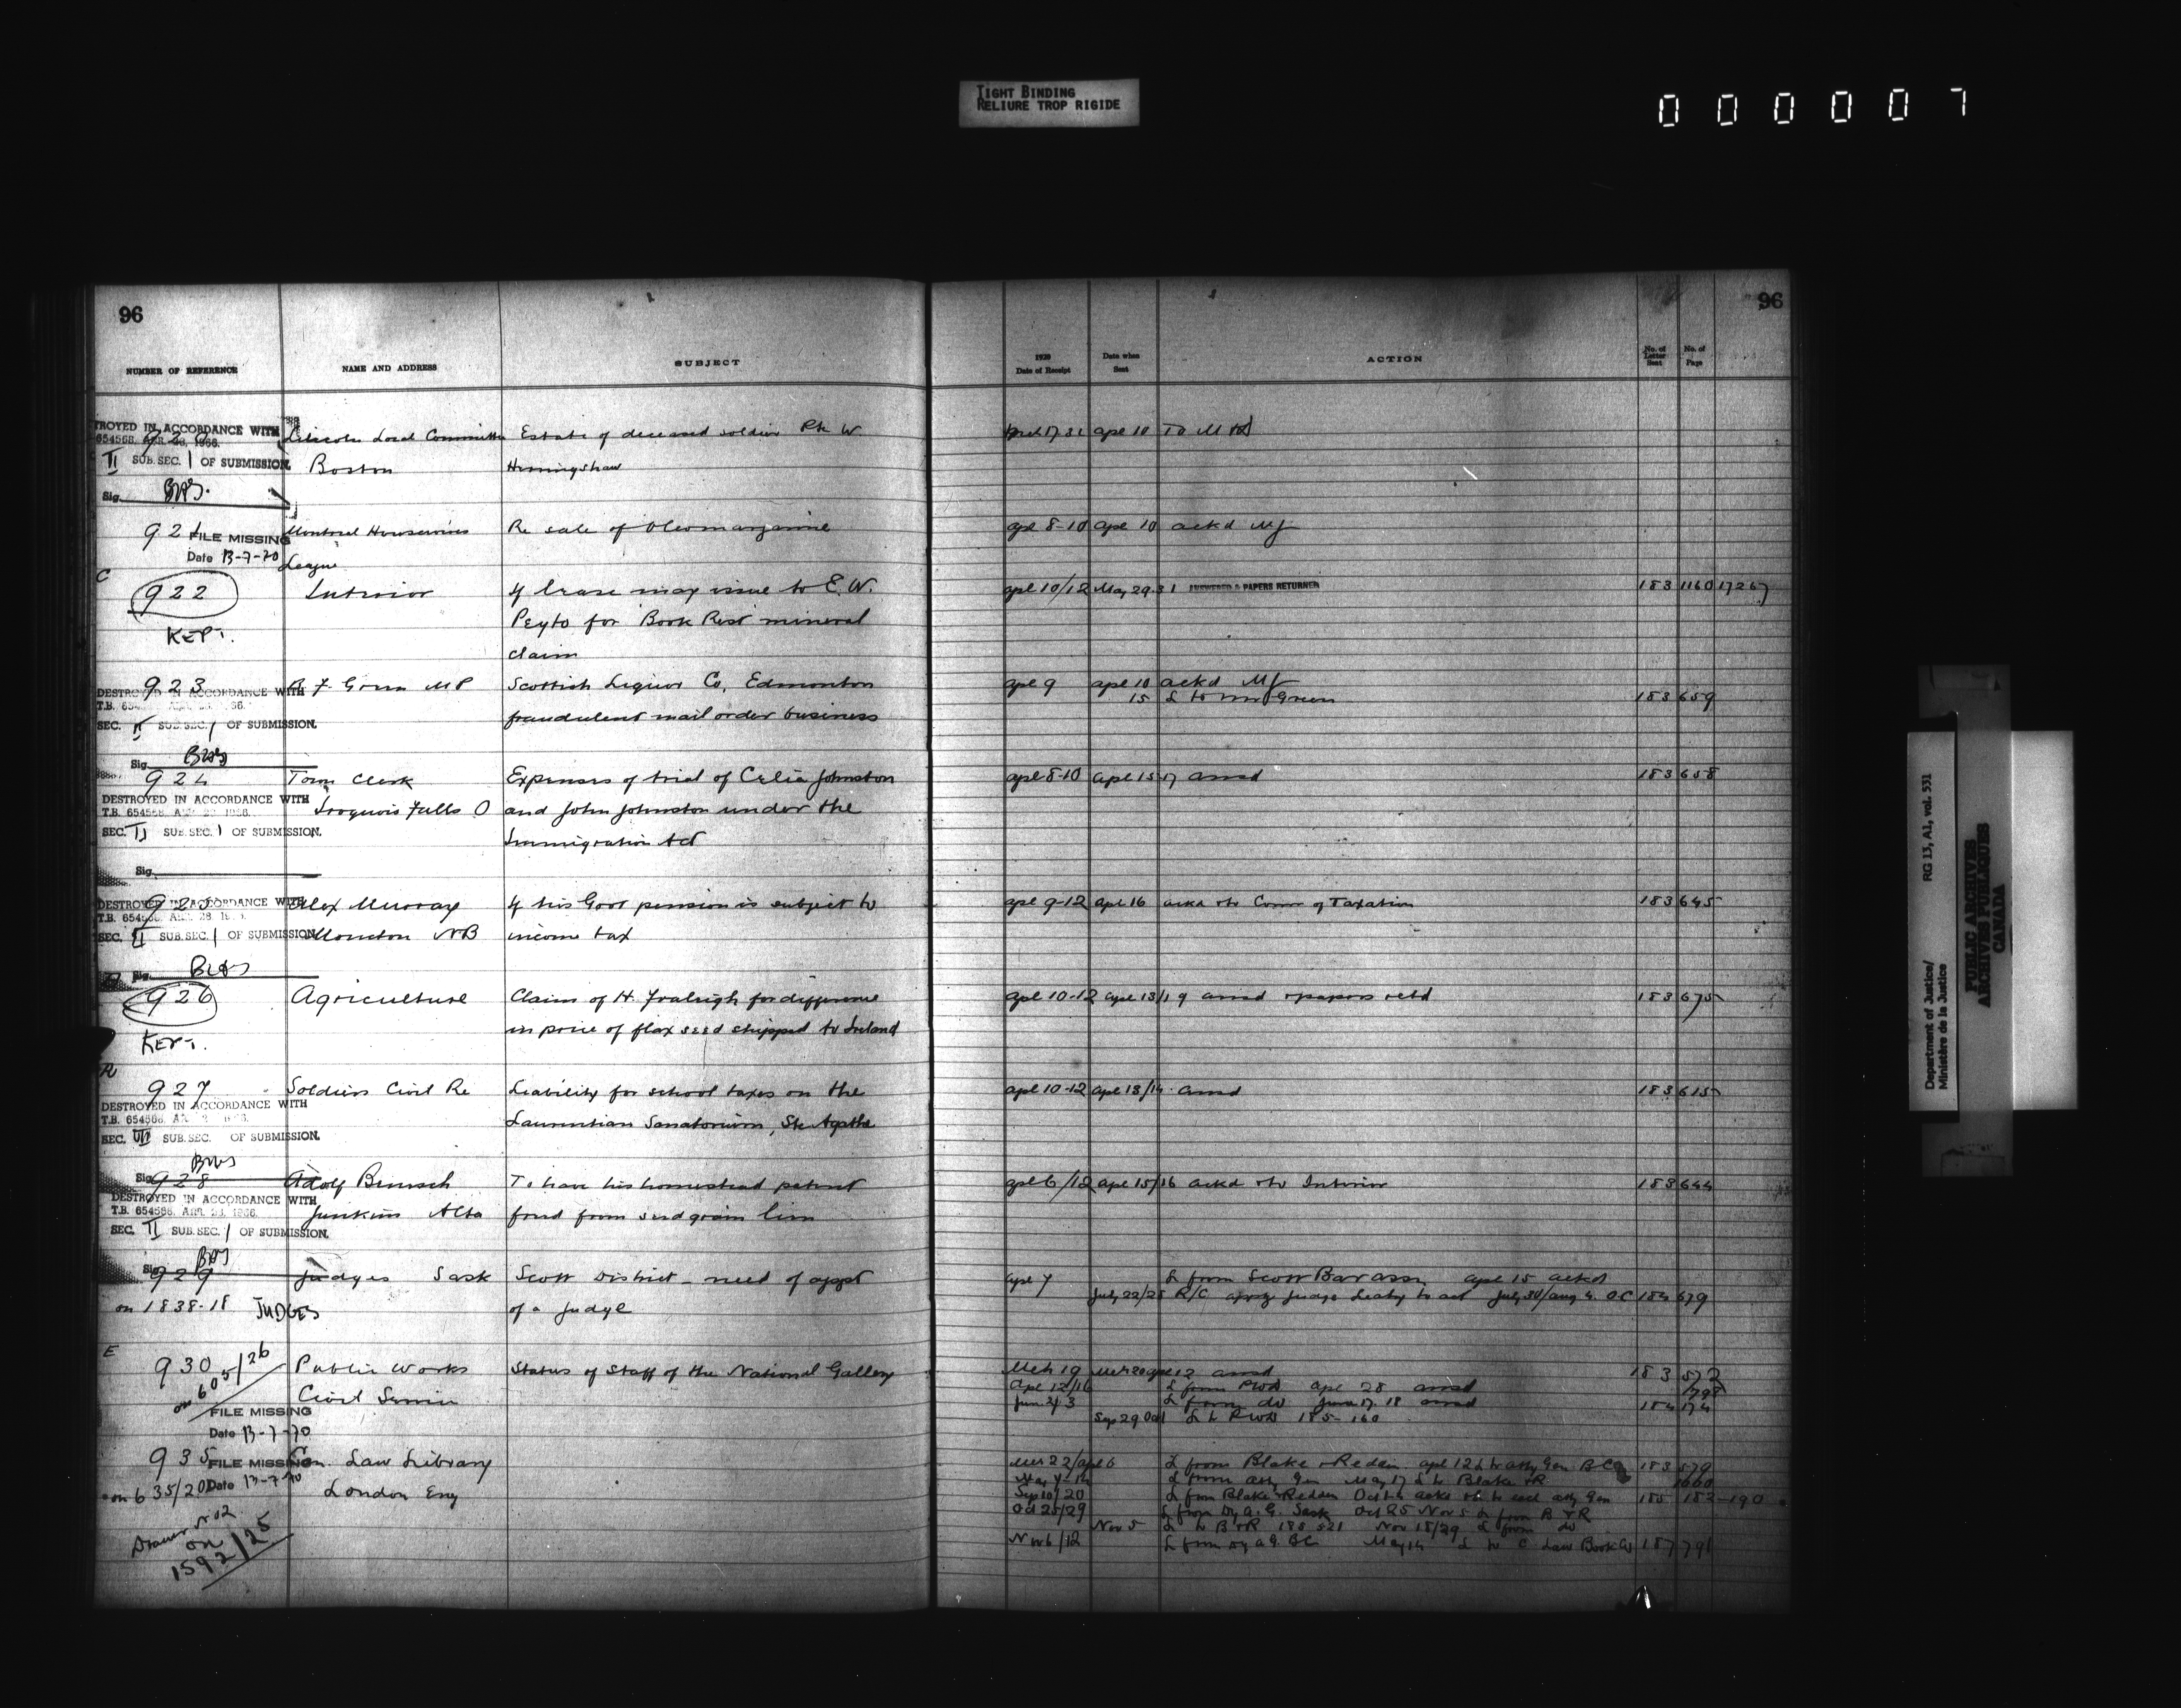 TIGHT BINDING
RELIURE TROP RIGIDE
0 0 0 0 0 7
96
96
NUMBER OF REFERENCE NAME AND ADDRESS SUBJECT
1920 Date of Receipt Date when Sent ACTION No. of Letter Sent No. of Page
TROYED IN ACCORDANCE WITH
654568 APR. 28, 1966.
II SUB. SEC. 1 OF SUBMISSION.
Sig.
Lincoln Local Committee Estate of deceased soldier Pte W apl 10 To M
Boston Hemingshaw
921 Montreal Housewives Re sale of Oleomargarine apl 8-10 apl 10 ackd MJ
FILE MISSING
Date 13-7-70
League
C
922 Interior If lease may issue to E. W. apl 10/12 May 29-31 ANSWERED & PAPERS RETURNED 183 1160 17267
Peyto for Book Rest mineral
KEPT.
claim
923 Green MP Scottish Liquor Co, Edmonton apl 9 apl 10 ackd MJ
15 L to Mr Green 183 659
DESTROYED IN ACCORDANCE WITH
T.B. 654
SEC. II SUB. SEC. 1 OF SUBMISSION.
fraudulent mail order business
Sig.
924 Town Clerk Expenses of trial of Celia Johnston apl 8-10 apl 15-17 ansd 183 658
DESTROYED IN ACCORDANCE WITH
T.B. 654568 APR 28 1966.
Iroquois Falls O and John Johnston under the
SEC. II SUB. SEC. 1 OF SUBMISSION.
Immigration Act
Sig.
925 Alex Murray If his Govt pension is subject to apl 9-12 apl 16 ackd & to Comr of Taxation 183 645
DESTROYED IN ACCORDANCE WITH
T.B. 654568 APR. 28. 1966.
SEC. II SUB. SEC. 1 OF SUBMISSION
Moncton NB income tax
Sig.
926 Agriculture Claim of H. Fraleigh for difference apl 10-12 apl 13/19 ansd & papers retd 183 675
in price of flax seed shipped to Ireland
KEPT.
R
927 Soldiers Civil Re Liability for school taxes on the apl 10-12 apl 13/14 ansd 183 615
DESTROYED IN ACCORDANCE WITH
T.B. 654568
Laurentian Sanatorium, Ste Agathe
SEC. III SUB. SEC. OF SUBMISSION.
Sig.
928 Adolf To have his homestead patent apl 6/12 apl 15/16 ackd & to Interior 183 644
DESTROYED IN ACCORDANCE WITH
T.B. 654568. APR. 28. 1966.
Junkins Alta freed from seed grain lien
SEC. II SUB. SEC. 1 OF SUBMISSION.
Sig.
929 Judges Sask Scott District - need of appt apl 7 L from Scott Bar Assn apl 15 ackd
on 1838-18 JUDGES of a Judge July 22/28 R/C Judge to act July 30/Aug 4. OC 184 679
E
930 Public Works Status of Staff of the National Gallery Mch 19 apl 12 ansd 183 572
on 605/26 Civil Service Apl 12/16 L from PWD apl 28 ansd 798
June 2/3 L from do June 17. 18 ansd 184 174
FILE MISSING
Date 13-7-70
Sep 29 L to PWD 185-160
935 Law Library L from Blake & Redden apl 12 L to atty Gen BC 183 579
FILE MISSING
Date 13-7-70
on 635/20 London Eng May L from atty Gen May 17 L to Blake & R 1060
Sep 10/20 L from Blake & Redden 185 182-190
Oct 25/29 L from Dy A. G. Sask Oct 25 Nov 5 L from B & R
Nov 5 L to B & R 185 521 Nov 15/29 L from do
Nov 6/12 L from Dy A G BC May 14 L to C Law Book Co 187 791
Drawer No 2
on
1592/25
Department of Justice/
Ministère de la Justice
RG 13, A1, vol. 531
PUBLIC ARCHIVES
ARCHIVES PUBLIQUES
CANADA